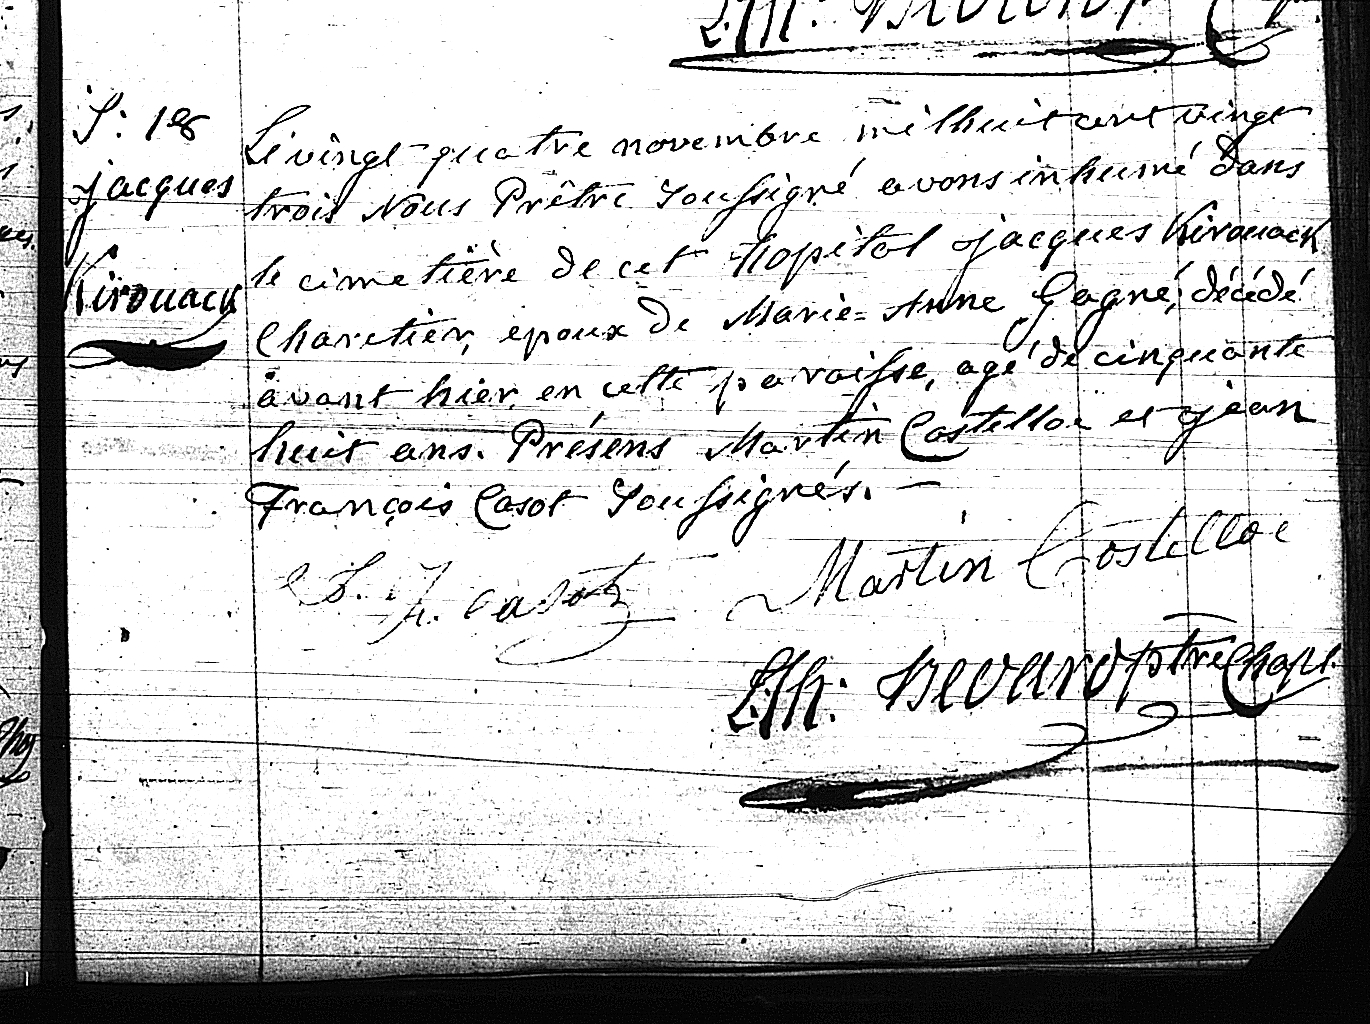 S: 18
jacques
Kirouack
Le vingt quatre novembre mil huit cent vingt
trois Nous Prêtre Soussigné avons inhumé dans
le cimetière de cet hopital jacques Kirouack
Charetier, epoux de Marie=Anne Gagné, décédé
avant hier en cette paroisse, agé de cinquante
huit ans. Présens Martin Costelloe et jean
François Casot Soussignés. —
J. F. Casot
Martin Costelloe
ptre Chapl.